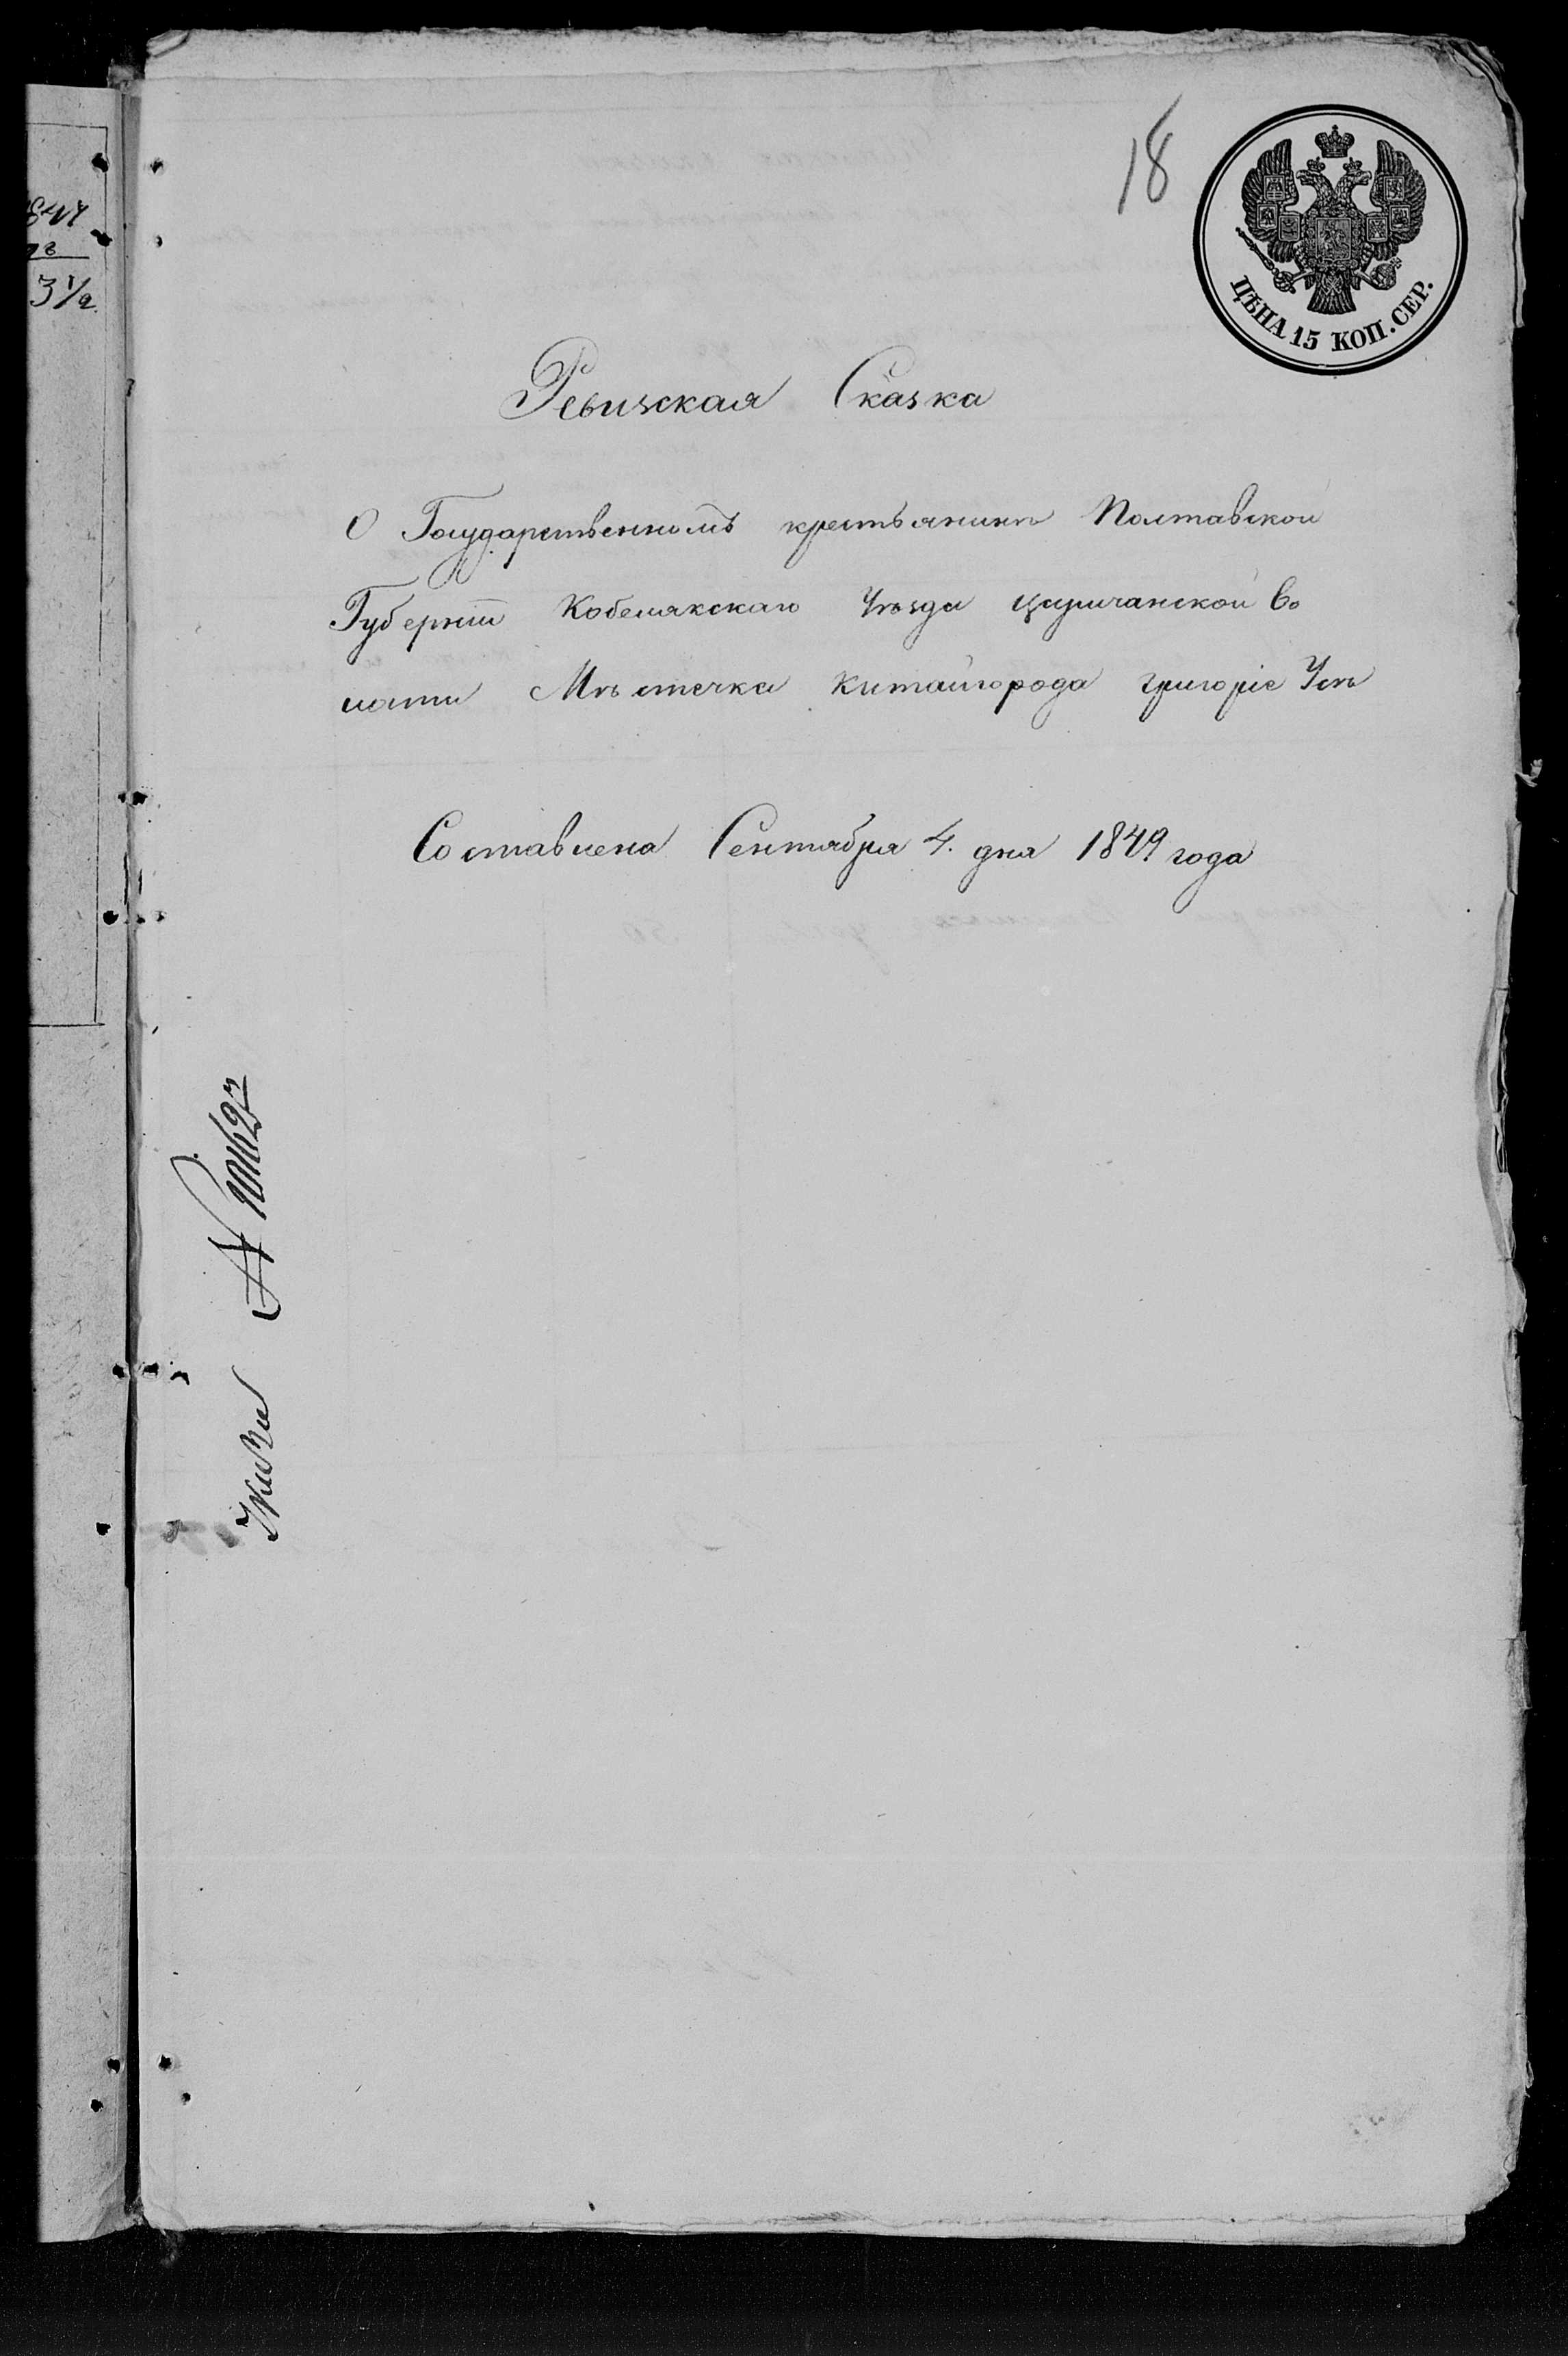 18
ЦѢНА 15 КОП. СЕР.
Ревизская Сказка
О Государственномъ крестьянинѣ Полтавской
Губернiи Кобелякскаго Уѣзда Царичанской Во
лости Мѣстечка Китайгорода Григорiе Усѣ
Составлена Сентября 4. дня 1849 года
3 1/2